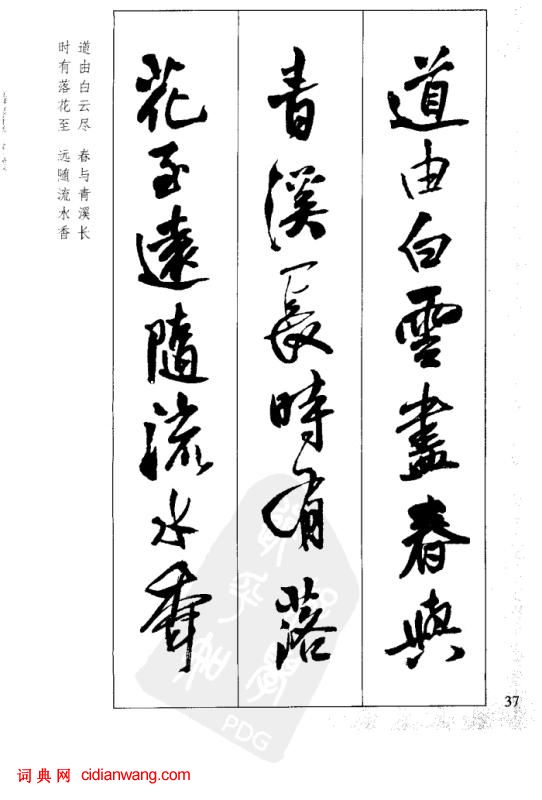 道由白雲盡春與
青溪長時有落
花至遠隨流水香
道由白云尽 春与青溪长
时有落花至 远随流水香
37
PDG
词典网 cidianwang.com